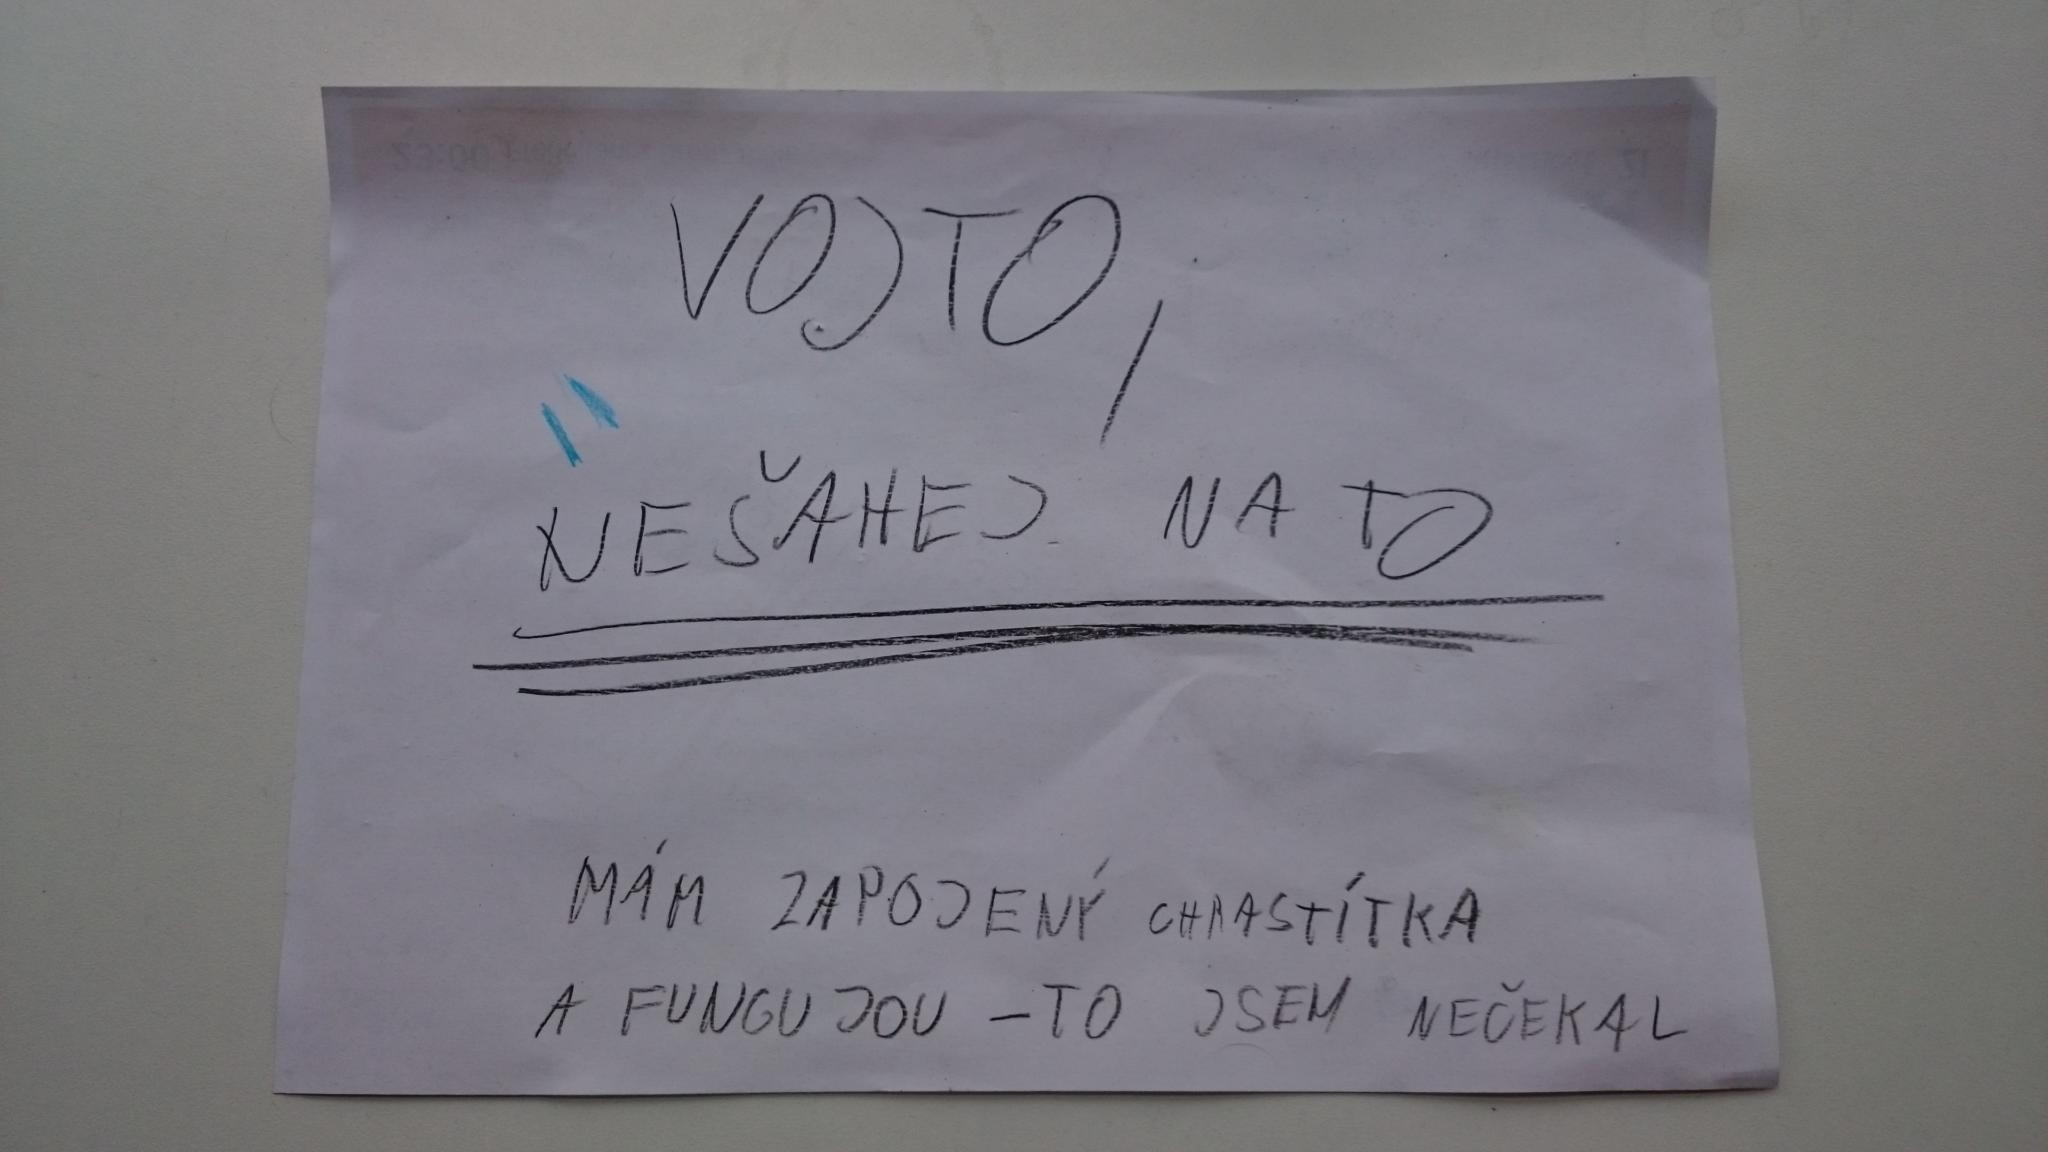 VOJTO,
NEŠAHEJ NA TO
MÁM ZAPOJENÝ CHRASTÍTKA
A FUNGUJOU – TO JSEM NEČEKAL